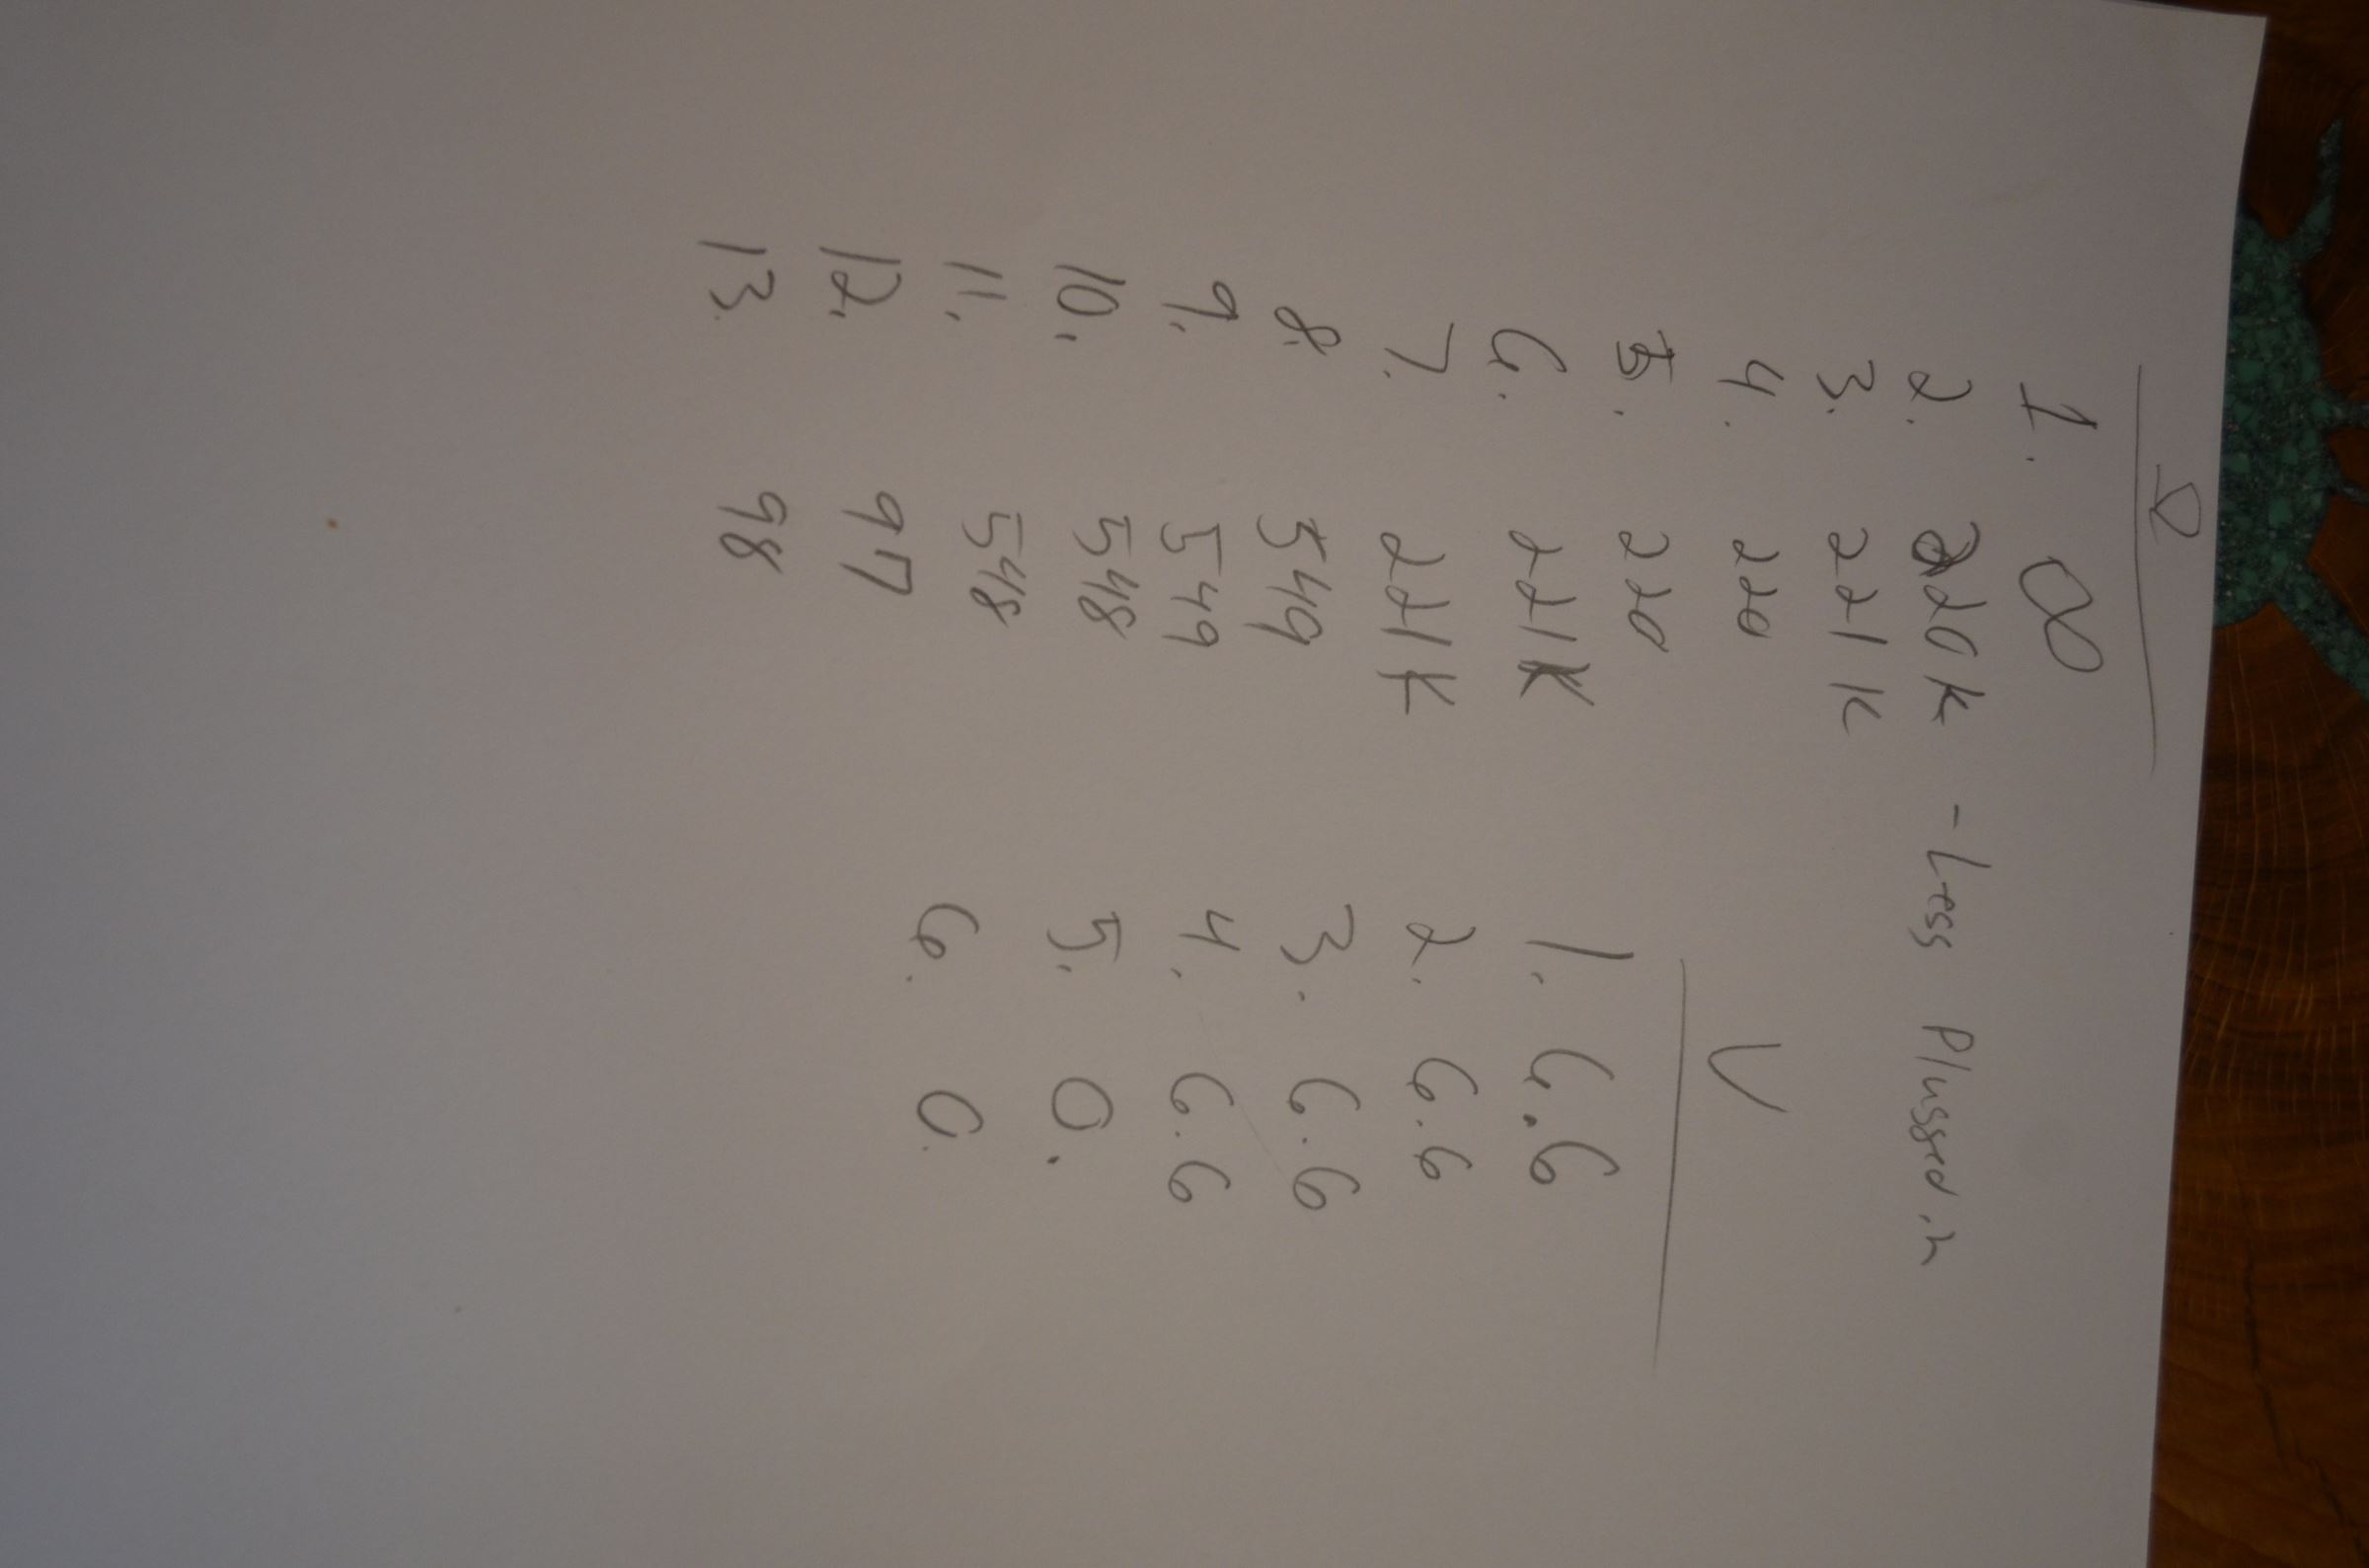 Ω
1. ∞
2. 220k - Less Plugged in
3. 221k
4. 220
5. 220
6. 221K
7. 221K
8. 549
9. 549
10. 548
11. 548
12. 97
13. 98
V
1. 6.6
2. 6.6
3. 6.6
4. 6.6
5. 0.
6. 0.